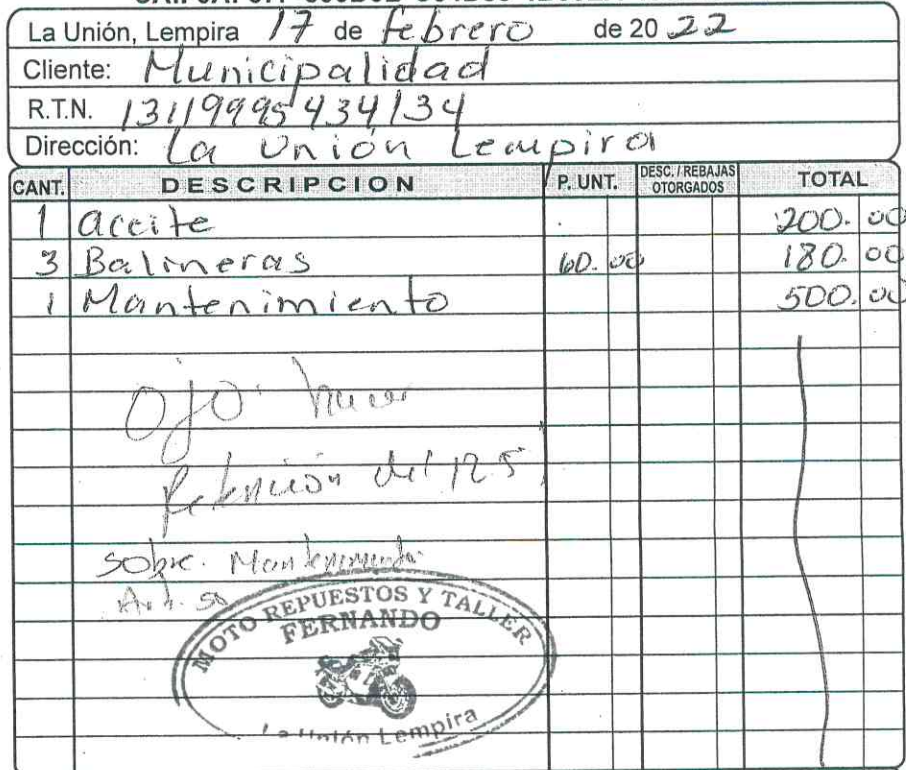 La Unión, Lempira 17 de febrero de 20 22
Cliente: Municipalidad
R.T.N. 13119995434134
Dirección: La Unión Lempira
CANT. DESCRIPCION P. UNT. DESC. / REBAJAS OTORGADOS TOTAL
1 aceite 200.00
3 Balineras 60.00 180.00
1 Mantenimiento 500.00
Ojo.
Retención del 12.5
sobre. Mantenimiento
Art. 50
MOTO REPUESTOS Y TALLER
FERNANDO
La Unión Lempira